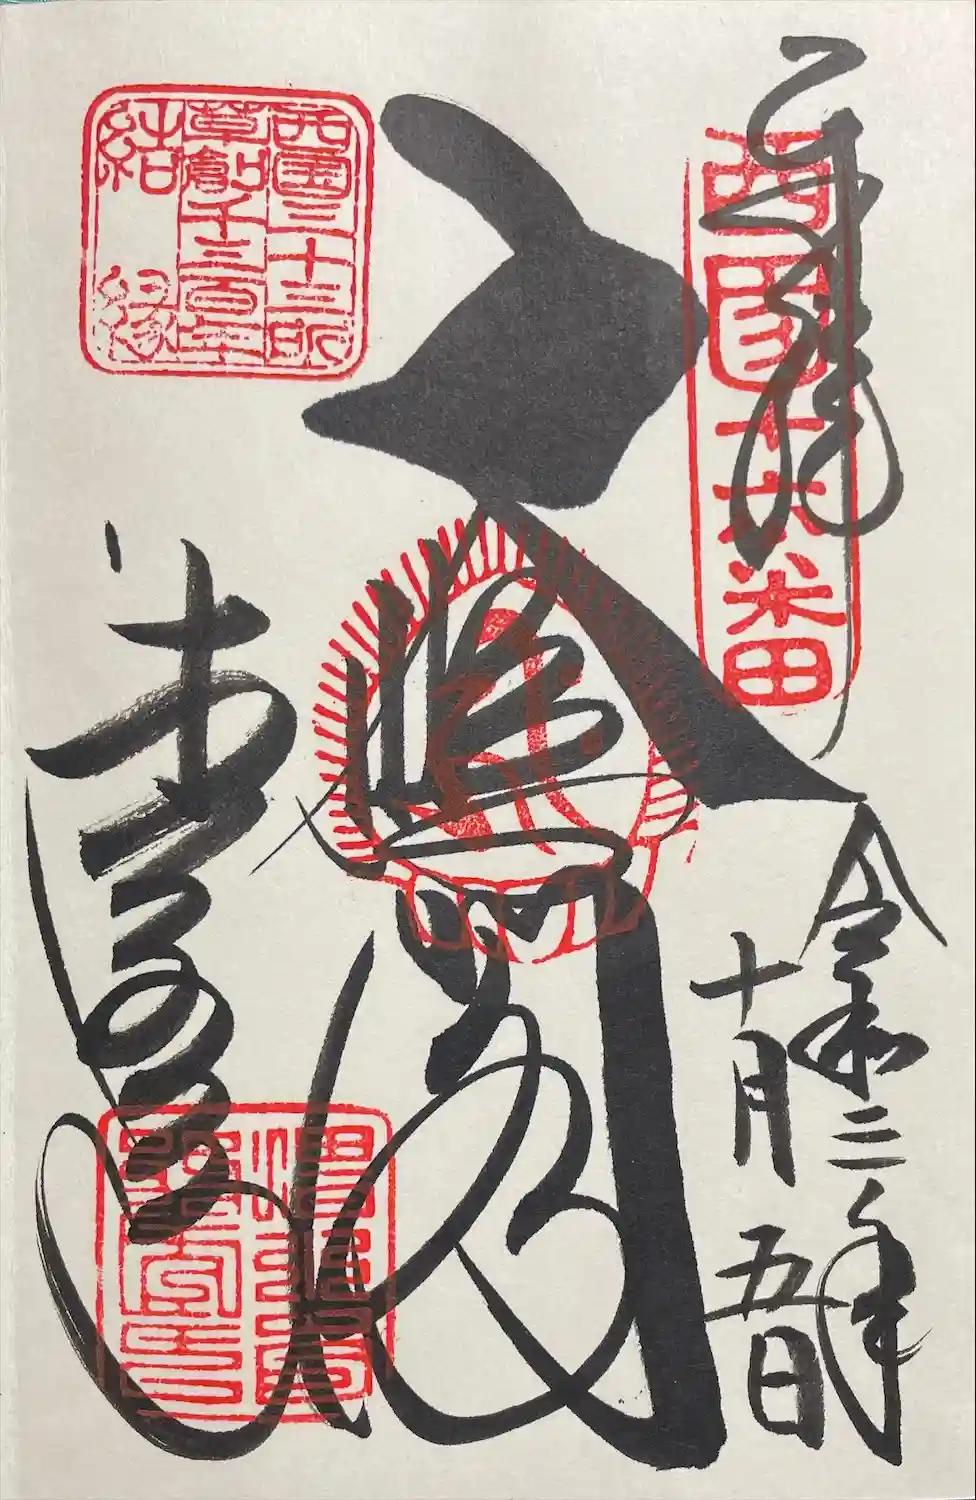 奉拝
西国十六番
令和二年
十月五日
大悲閣
西国三十三所
草創千三百年
結縁